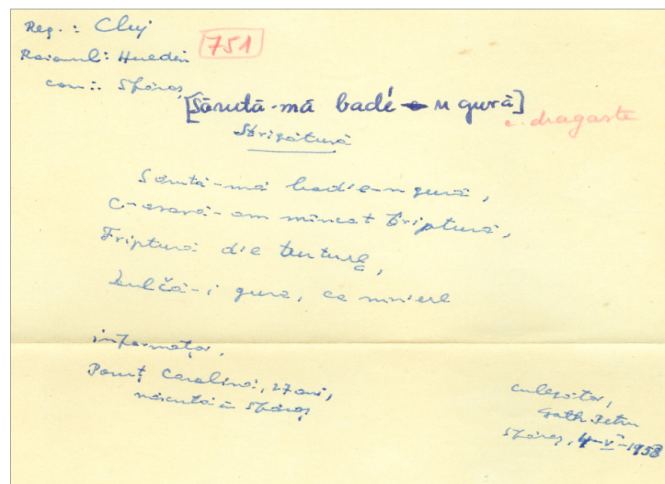 Reg.: Cluj
751
Raionul: Huedin
com.: Sfăraș
[Sărută-mă badé n gură]
c. dragoste
Strigătură
Sărută-mă badie-n gură,
C-asară-am mîncat friptură,
Friptură die turturé,
Dulčă-i gura, ca mniere
informator,
Carolina, 27 ani,
născută în Sfăraș
culegător,
Petru
Sfăraș, 4-V-1958